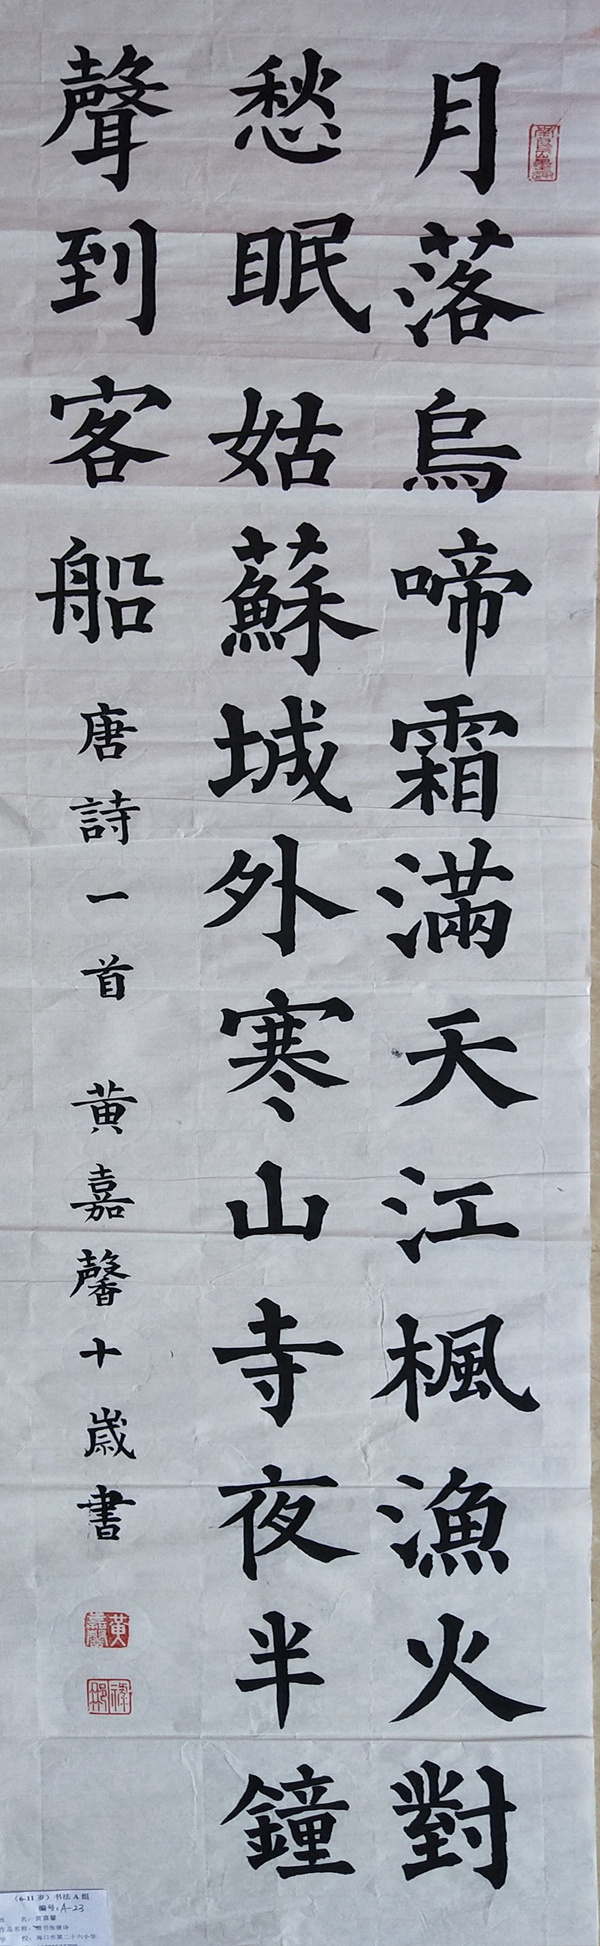 月落烏啼霜滿天江楓漁火對
愁眠姑蘇城外寒山寺夜半鐘
聲到客船
唐詩一首 黄嘉馨十歲書
黄嘉馨
(6-11岁)书法A组
编号:A-23
姓 名:黄嘉馨
作品名称:楷书张继诗
学 校:海口市第二十六小学